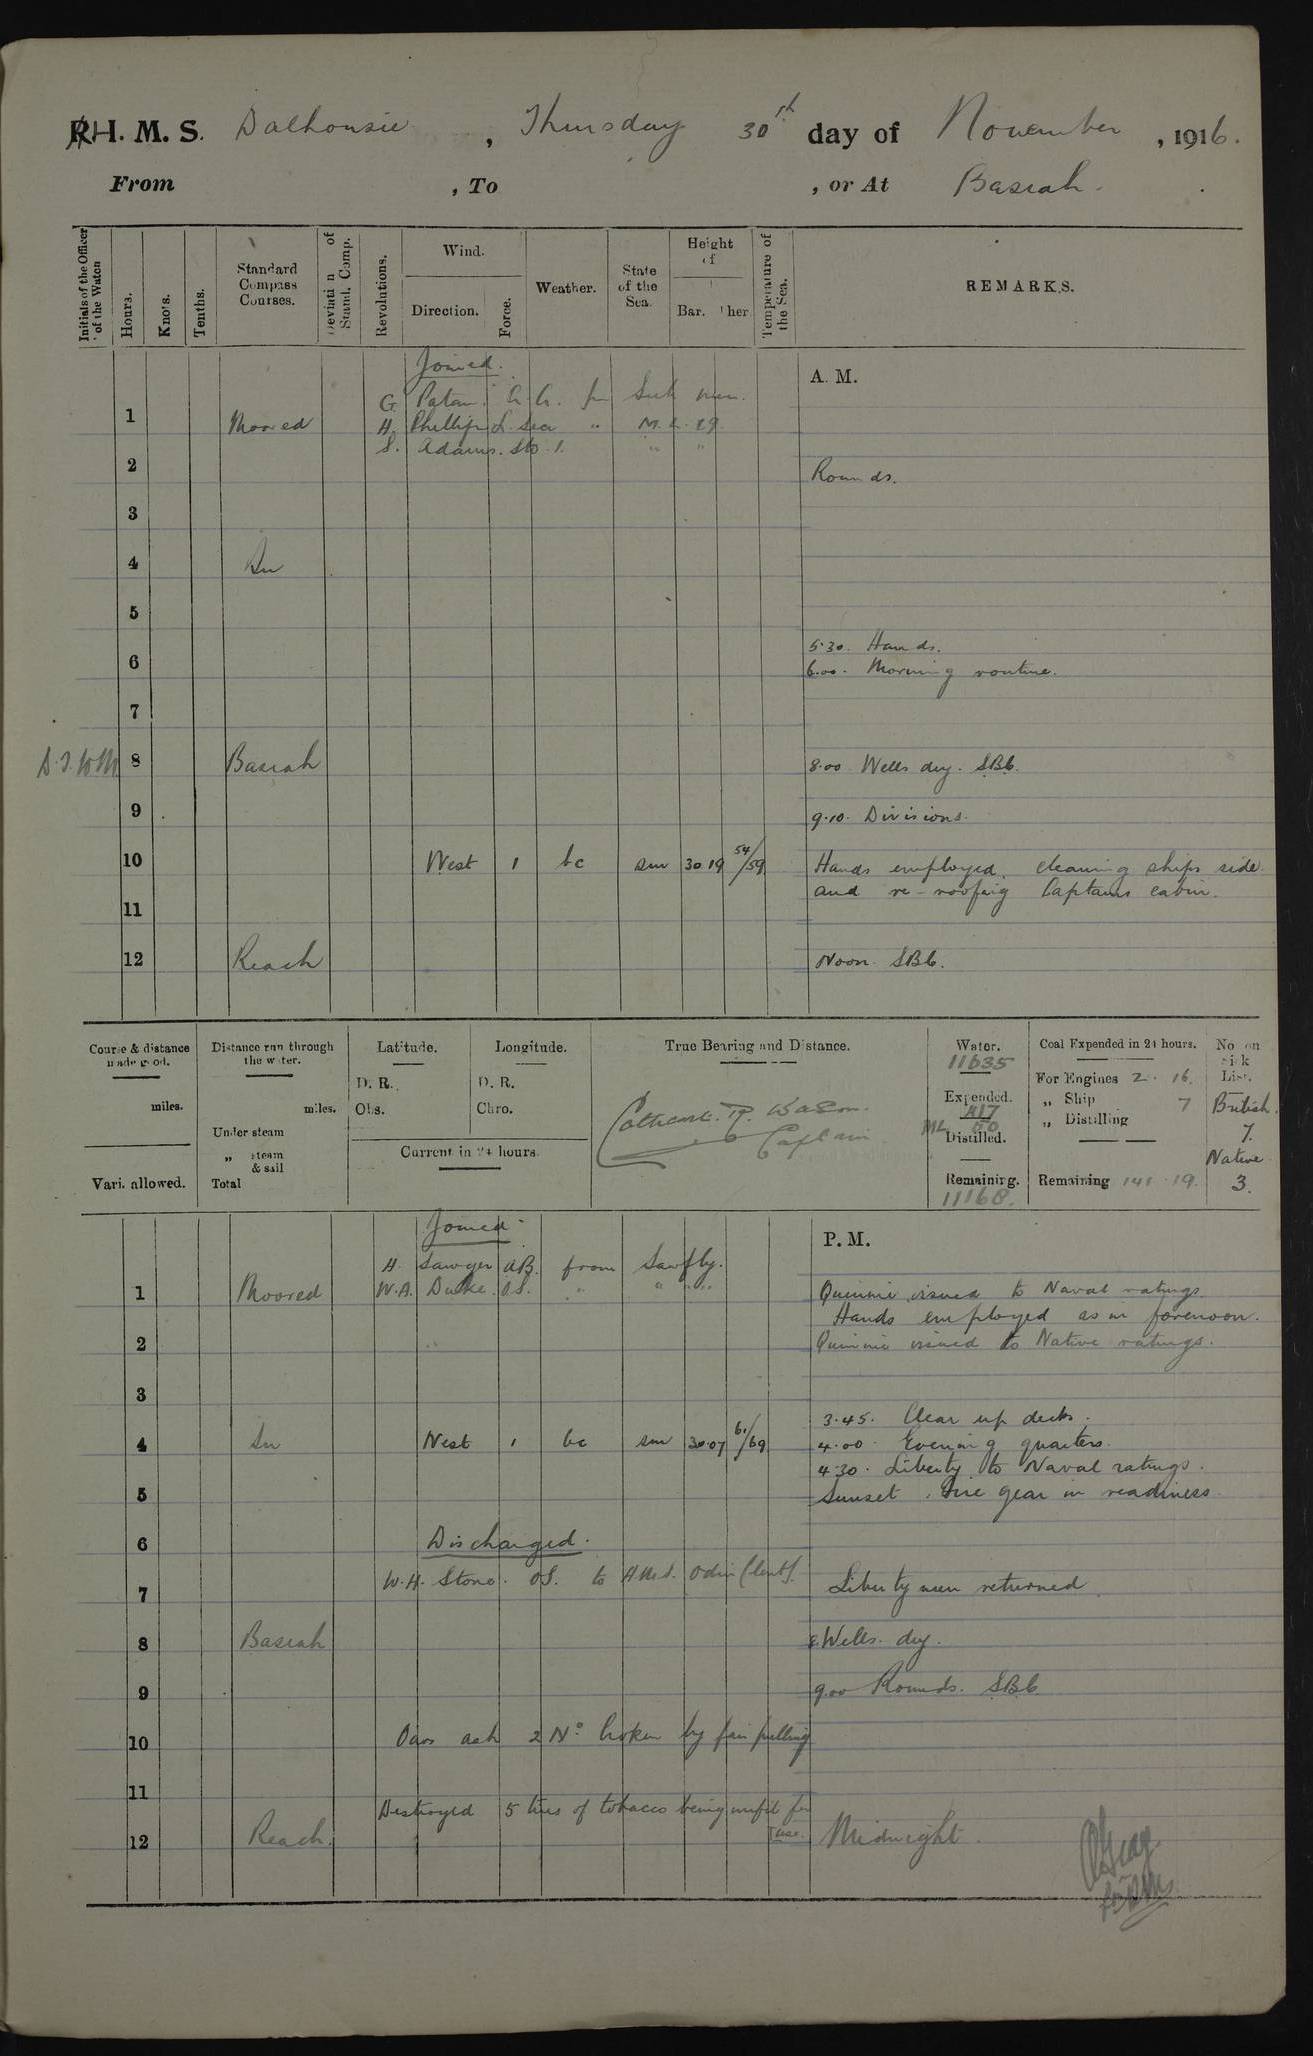 H. M. S. Dalhousie, Thursday 30th day of November, 1916.
From , To , or At Basrah.
Initials of the Officer of the Watch
Hours.
Knots.
Tenths.
Standard Compass Courses.
Deviation of Stand. Comp.
Revolutions.
Wind.
Direction.
Force.
Weather.
State of the Sea.
Height of
Bar. Ther
Temperature of the Sea.
REMARKS.
Joined.
A. M.
G. Patan. sick
1 Moored H. Phillips L. Sea " M.L. 29.
S. Adams. Sto. 1. " "
2 Rounds.
3
4 In
5
5.30. Hands.
6 6.00. Morning routine.
7
8 Basrah 8.00 Wells dry. SBC.
9 9.10. Divisions.
10 West 1 bc sm 30.19 54/59 Hands employed, cleaning ships side
and re-roofing Captains cabin.
11
12 Reach Noon SBC.
Course & distance made good.
miles.
Vari. allowed.
Distance run through the water.
miles.
Under steam
„ steam & sail
Total
Latitude.
D. R.
Obs.
Longitude.
D. R.
Chro.
Current in 24 hours.
True Bearing and Distance.
Cathcart R. Wason.
Captain
Water.
11635
Expended.
417
ML 50
Distilled.
Remaining.
11168.
Coal Expended in 24 hours.
For Engines 2. 16.
„ Ship 7
„ Distilling
Remaining 141 19.
No on Sick List.
British.
7.
Native
3.
Joined.
P. M.
H. Sawyer AB. from Sawfly.
1 Moored W.A. Duke. O.S. " " " Quinine issued to Naval ratings.
Hands employed as in forenoon.
2 Quinine issued to Native ratings.
3
3.45. Clear up decks.
4 In West 1 bc sm 30.07 61/69 4.00 Evening quarters.
4.30. Liberty to Naval ratings.
5 Sunset. Fire gear in readiness.
6 Discharged.
W.H. Stone. OS. to H.M.S. Odin (lent).
7 Liberty men returned.
8 Basrah 8 Wells. dry.
9 9.00 Rounds. SBC.
10 Oars ash 2 No broken by fair pulling
11
Destroyed 5 tins of tobacco being unfit for
use.
12 Reach. Midnight.